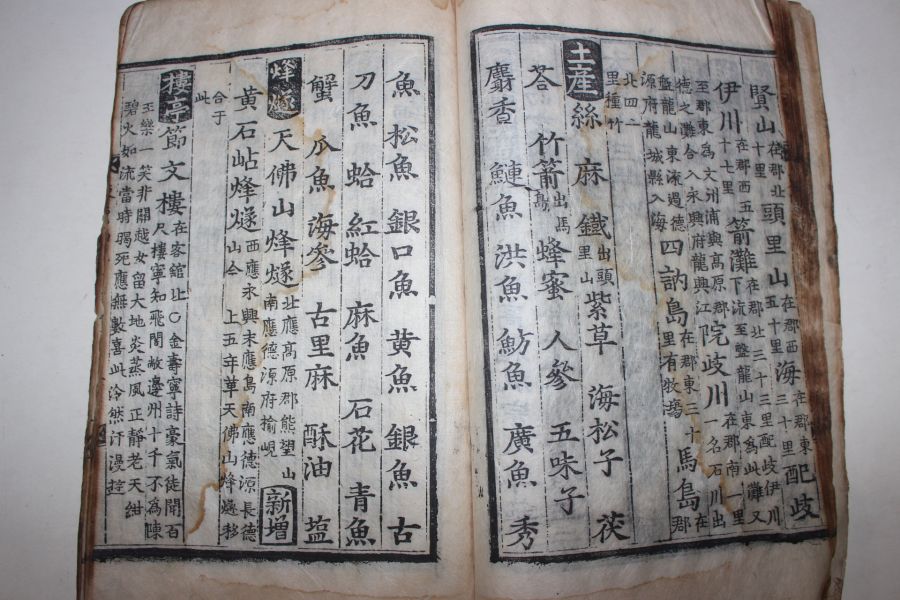 賢山在郡北十里頭里山在郡西五十里海在郡東三十里配歧
伊川在郡西五十七里箭灘在郡北三十三里配歧伊川下流至盤龍山東為此灘又
至郡東為文州浦與高原郡德之灘合入永興府龍興江院歧川在郡南一里一名石川出
盤龍山東流過德源府龍城縣入海四訥島在郡東三十里有牧場馬島在郡
北四十二里種竹土產絲 麻 鐵出頭里山紫草 海松子 茯
苓 竹箭出馬島蜂蜜 人參 五味子
麝香 鰱魚 洪魚 魴魚 廣魚 秀
魚 松魚 銀口魚 黄魚 銀魚 古
刀魚 蛤 紅蛤 麻魚 石花 青魚
蟹 瓜魚 海參 古里麻 酥油 塩
烽燧天佛山烽燧北應高原郡熊望山南應德源府揄峴新增
黄石岾烽燧西應永興末應島南應德源長德山今上五年革天佛山烽燧移
合于此
樓亭節文樓在客舘北○金壽寧詩豪氣徒聞百尺樓寧知飛閣敞邊州十千不為陳
王樂一笑非關越女留大地炎蒸風正靜老天紺碧火如流當時暍死應無數喜此泠然汗漫控